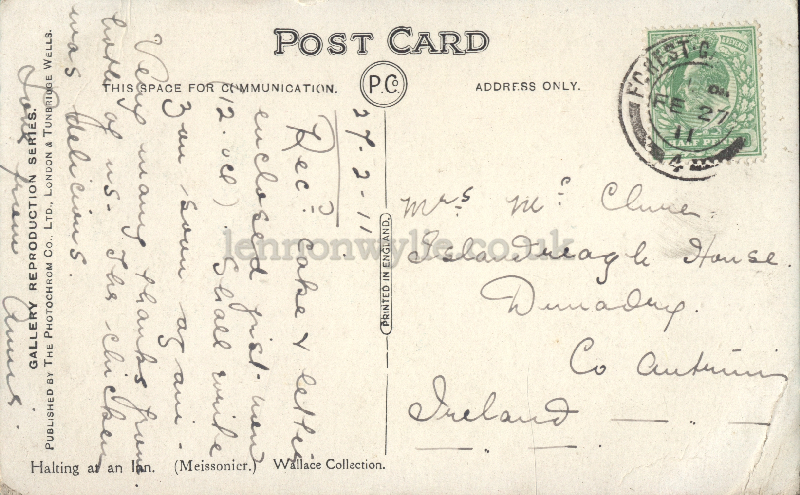 POST CARD
THIS SPACE FOR COMMUNICATION.
P.Co
ADDRESS ONLY.
FOREST G.
FE 27
11
4
HALF PENNY
27-2-11
Recd. Cake & letter
enclosed just now
(12. ocl). Shall write
3 an soon again.
Very many thanks from
both of us. The chicken
was delicious.
Love from Annie.
GALLERY REPRODUCTION SERIES.
PUBLISHED BY THE PHOTOCHROM CO., LTD., LONDON & TUNBRIDGE WELLS.
PRINTED IN ENGLAND.
Mrs Mc Clure.
Islandreagh House.
Dunadry.
Co Antrim
Ireland
Halting at an Inn. (Meissonier.) Wallace Collection.
lennonwylie.co.uk